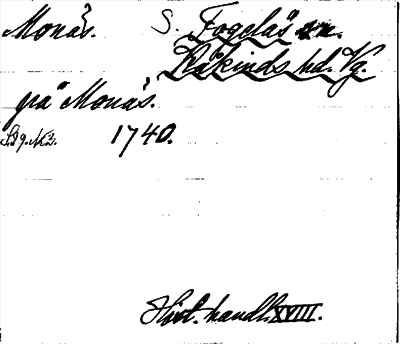 Monäs. S. Fogelås sn.
Kåkinds hd. Vg.
på Monäs.
1740.
Hist. handl. XVIII.